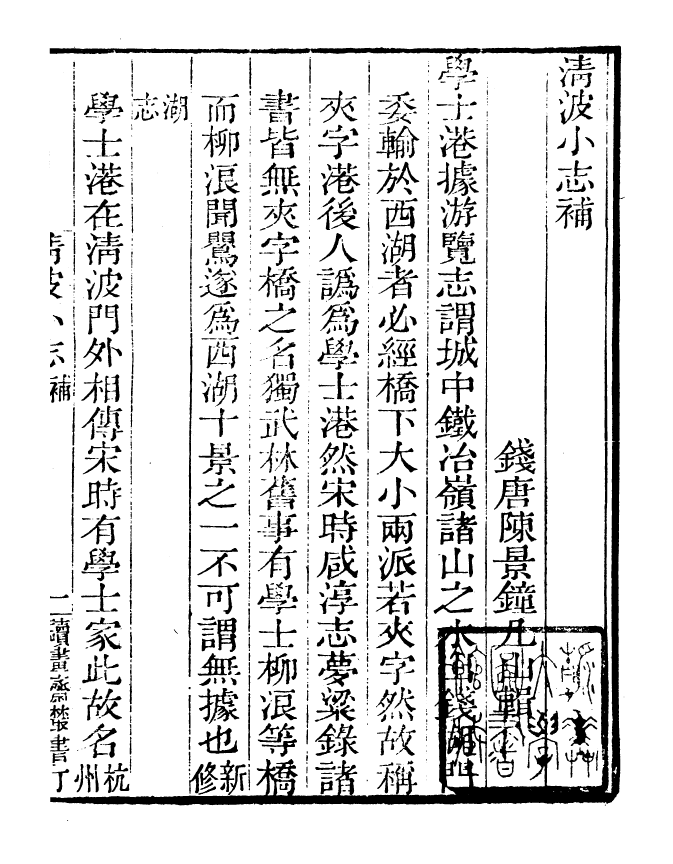 清波小志補
錢唐陳景鐘几山輯
學士港據游覽志謂城中鐵冶嶺諸山之水由錢湖門
委輸於西湖者必經橋下大小兩派若夾字然故稱
夾字港後人譌爲學士港然宋時咸淳志夢粱錄諸
書皆無夾字橋之名獨武林舊事有學士柳浪等橋
而柳浪聞鶯遂爲西湖十景之一不可謂無據也新修
湖志
學士港在清波門外相傳宋時有學士家此故名杭州
清波小志補 讀書齋叢書丁